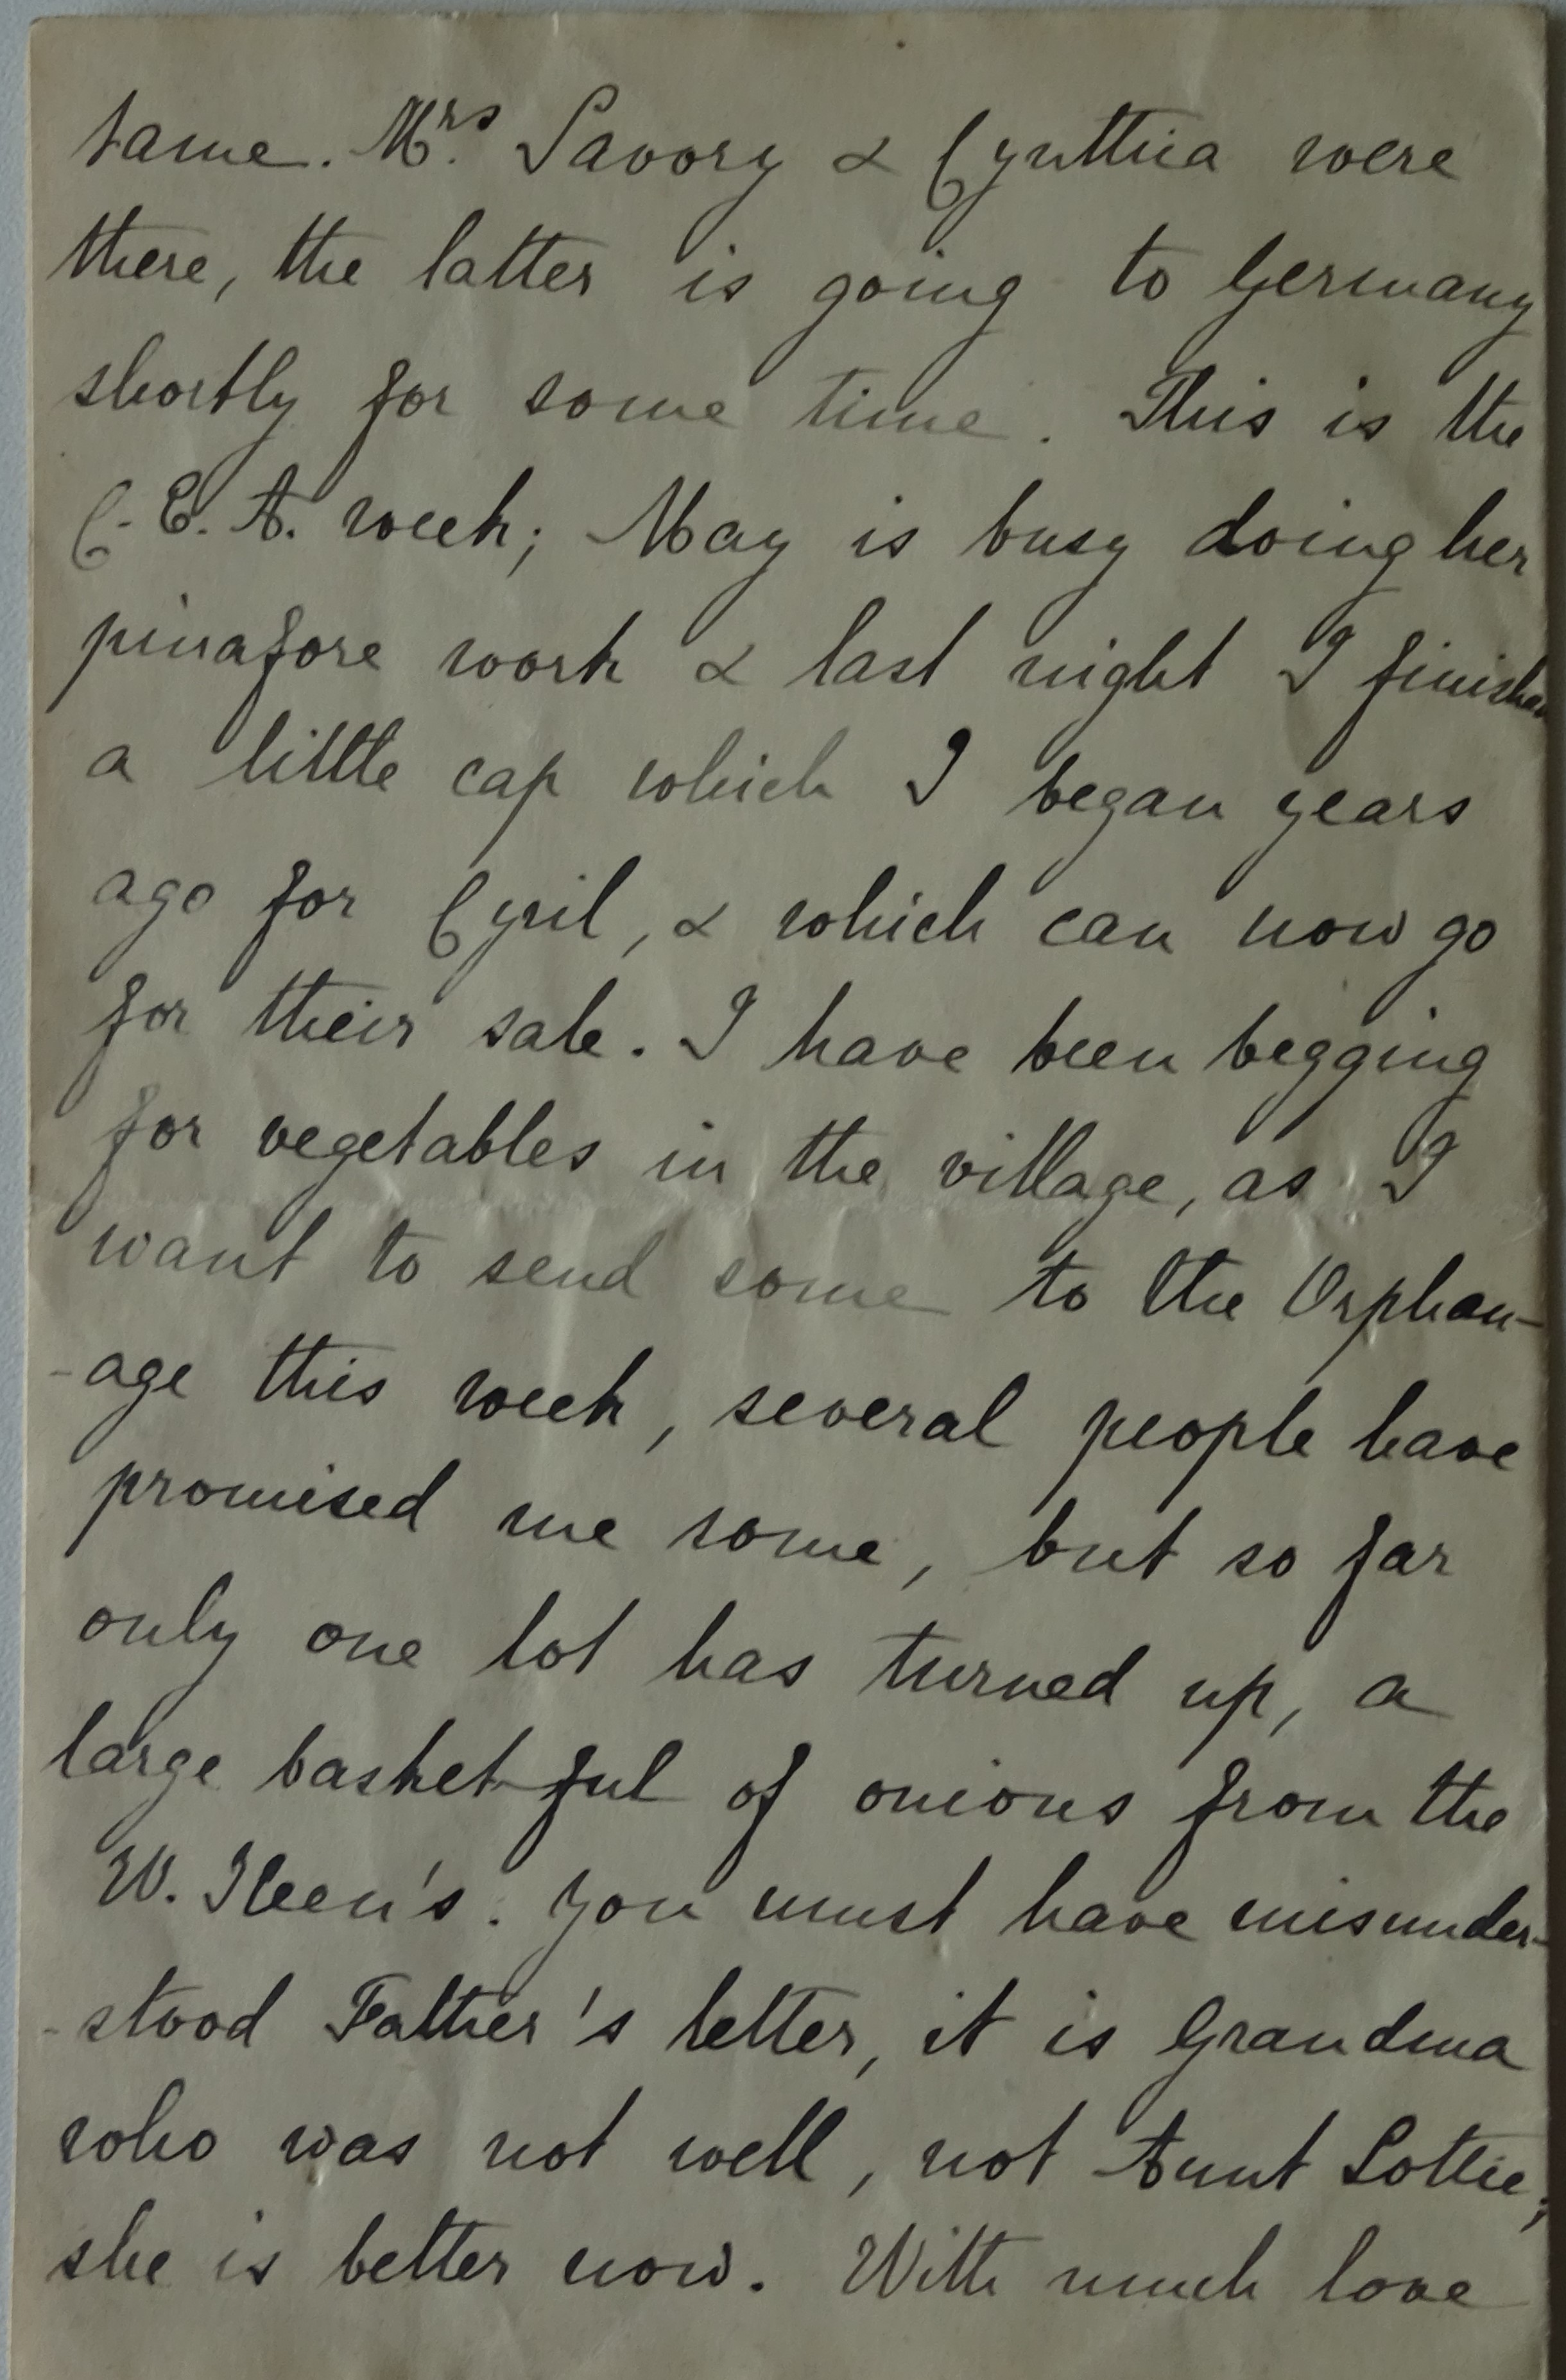 same. Mrs Savory & Cynthia were
there, the latter is going to Germany
shortly for some time. This is the
C. E. A. week; May is busy doing her
pinafore work & last night I finished
a little cap which I began years
ago for Cyril, & which can now go
for their sale. I have been begging
for vegetables in the village, as I
want to send some to the Orphan-
-age this week, several people have
promised me some, but so far
only one lot has turned up, a
large basket-ful of onions from the
W. Keen's. You must have misunder-
-stood Father's letter, it is Grandma
who was not well, not Aunt Lottie;
she is better now. With much love